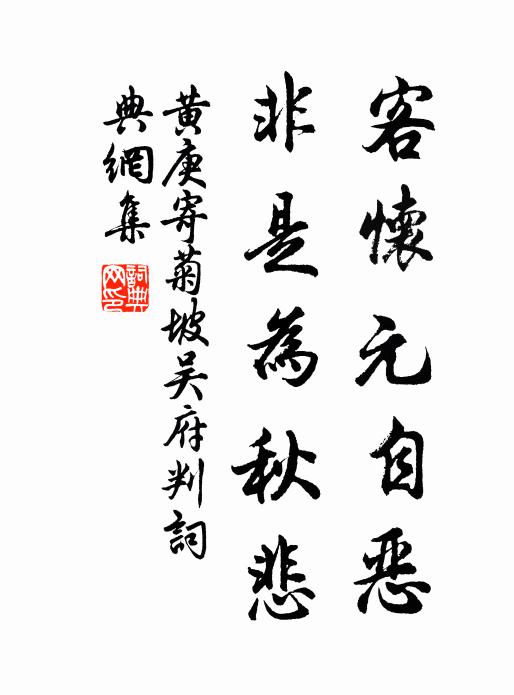 客懷元自惡
非是為秋悲
黄庚寄菊坡吴府判詞
典網集
詞典網印